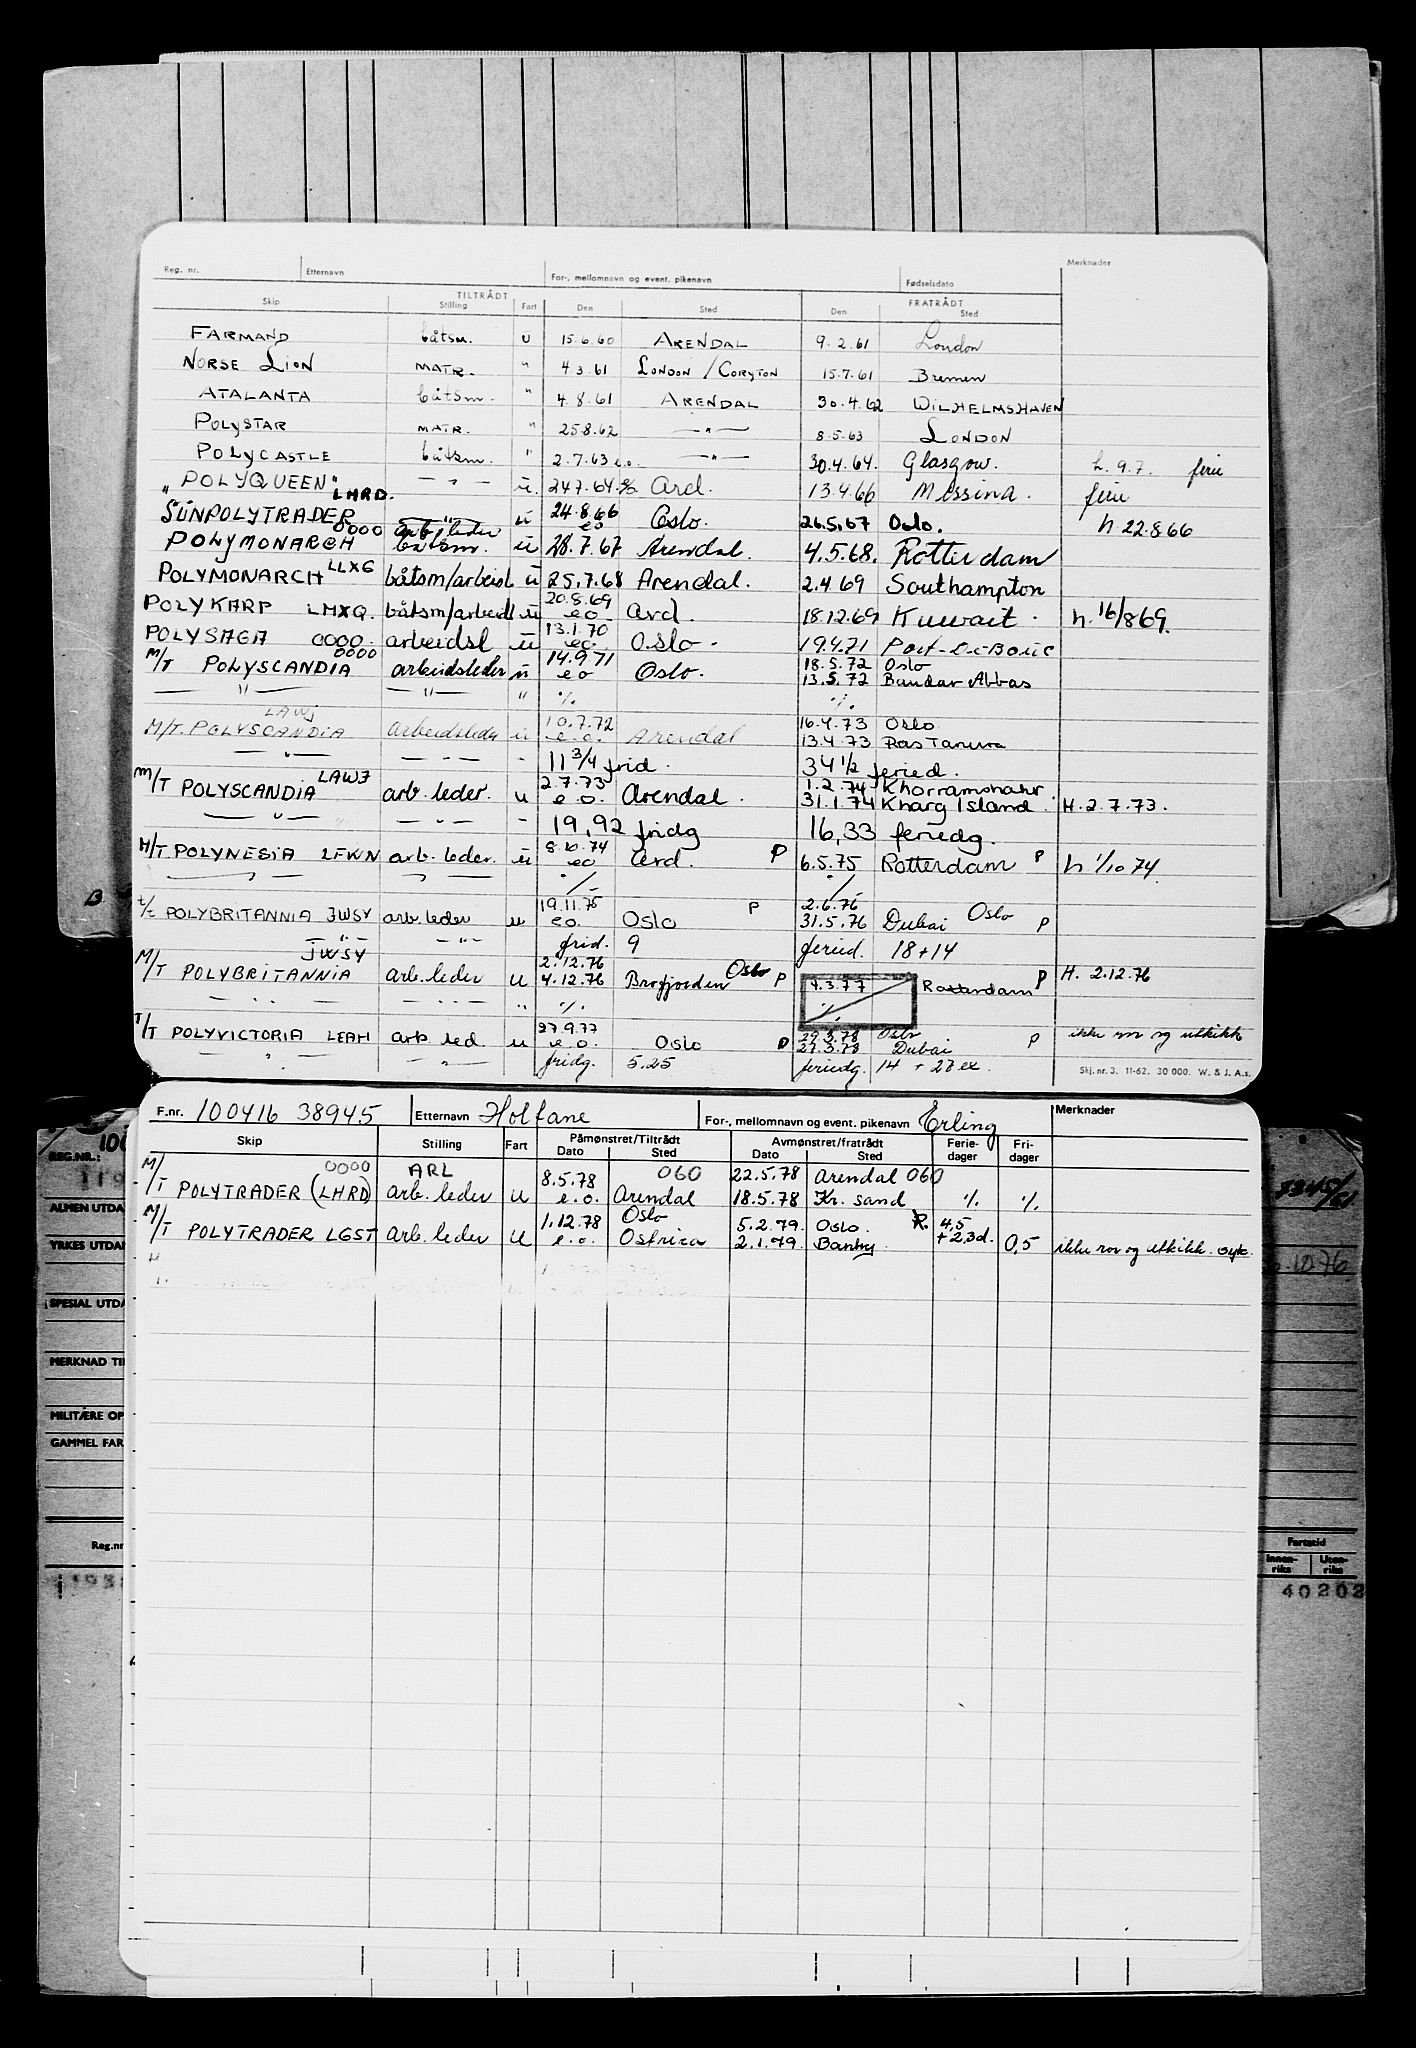 Reg. nr. Etternavn For-, mellomnavn og event. pikenavn Fødselsdato Merknader
TILTRÅDT FRATRÅDT
Skip Stilling Fart Den Sted Den Sted
FARMAND båtsm. u 15.6.60 ARENDAL 9.2.61 London
NORSE LION MATR. " 4.3.61 LONDON / CORYTON 15.7.61 Bremen
ATALANTA båtsm. " 4.8.61 ARENDAL 30.4.62 WILHELMSHAVEN
POLYSTAR MATR. " 25.8.62 —"— 8.5.63 LONDON
POLYCASTLE båtsm. " 2.7.63 e.o. —"— 30.4.64. Glasgow. h. 9.7. ferie
"POLYQUEEN" LHRD. — " — ü. 24.7.64. % Ard. 13.4.66 Messina. ferie
SUNPOLYTRADER 0000 arb,leder ü 24.8.66 eo Oslo. 26.5.67 Oslo. h 22.8.66
POLYMONARCH båtsm. ü 28.7.67 Arendal. 4.5.68. Rotterdam
POLYMONARCH LLXG båtsm/arbeisl ü 25.7.68 Arendal. 2.4 69 Southampton
POLYKARP LMXQ. båtsm/arbeidl ü 20.8.69 eo Ard. 18.12.69 Kuwait. h. 16/8 69.
POLYSAGA 0000. arbeidsl ü 13.1.70 eo. Oslo. 19.4.71 Port-De-Bouc
M/T POLYSCANDIA 0000 arbeidsleder ü 14.9.71 eo Oslo. 18.5.72 Oslo
13.5.72 Bandar Abbas
— " — — " — " %. %.
M/T. POLYSCANDIA LAWJ arbeidsleder ü 10.7.72 e.o. Arendal 16.4.73 Oslo
13.4.73 Ras Tanura
— " — — " — - 11 3/4 frid. 34 1/2 feried.
M/T POLYSCANDIA LAWJ arb. leder. u 2.7.73 e.o. Arendal. 1.2.74 Khorramshahr.
31.1.74 Kharg Island. H. 2.7.73.
— " — — " — - 19,92 fridg 16,33 feriedg.
M/T POLYNESIA LFWN arb. leder. ü 8.10.74 eo Ard. P 6.5.75 Rotterdam P h 1/10 74.
t/t POLYBRITANNIA JWSY arb. leder u 19.11.75 eo. Oslo P 2.6.76 Oslo
31.5.76 Dubai P
— " — — " — frid. 9 feried. 18+14
M/T POLYBRITANNIA JWSY arb. leder u 2.12.76 Oslo
4.12.76 Brofjorden P 4.3.77 Rotterdam P H. 2.12.76
— " — — " — " %. %
T/T POLYVICTORIA LEAH arb. led. u 27.9.77 e.o. Oslo P 29.3.78 Oslo
27.3.78 Dubai P ikke ror og utkikk
— " — — " — fridg. 5.25 feriedg. 14 + 27 ex.
Skj. nr. 3. 11-62. 30 000. W. & J. A.s.
F.nr. 100416 38945 Etternavn Holfane For-, mellomnavn og event. pikenavn Erling Merknader
Skip Stilling Fart Påmønstret/Tiltrådt Avmønstret/fratrådt Ferie-dager Fri-dager
Dato Sted Dato Sted
M/T POLYTRADER (LHRD) 0000 ARL arb. leder u 8.5.78 e.o. 060 Arendal 22.5.78 Arendal 060
18.5.78 Kr. sand % %
M/T POLYTRADER LGST arb. leder u 1.12.78 e.o. Oslo Ostrica 5.2.79. Oslo. R. 4,5
2.1.79. Bantry +2,3d. 0,5 ikke ror og utkikk. syk.
REG.NR.: 100
119
ALMEN UTDA
YRKES UTDA
SPESIAL UTDA
MERKNAD TI
MILITÆRE OP
GAMMEL FAR
Reg.nr
.10.76
Fartstid
Innen-riks Uten-riks
40202